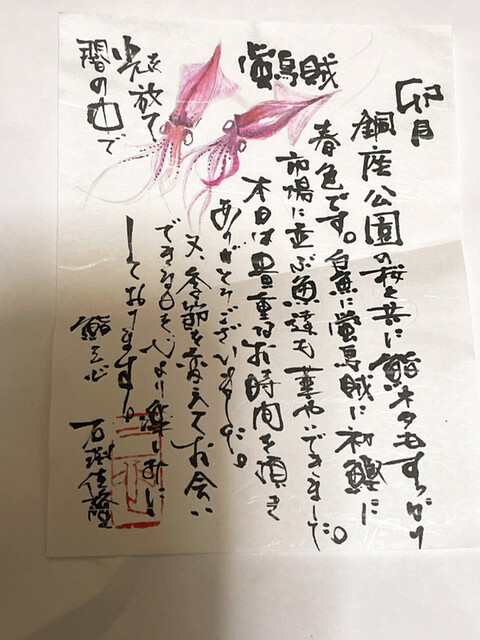 卯月
銅座公園の桜と共に鮨ネタもすっかり
春色です。白魚に蛍烏賊に初鰹に
市場に並ぶ魚達も華やいできました。
本日は貴重なお時間を頂き
ありがとうございました。
又、季節を変えてお会い
できる日を心より楽しみに
しております。
鮨
石
蛍烏賊
光放て
闇の中で